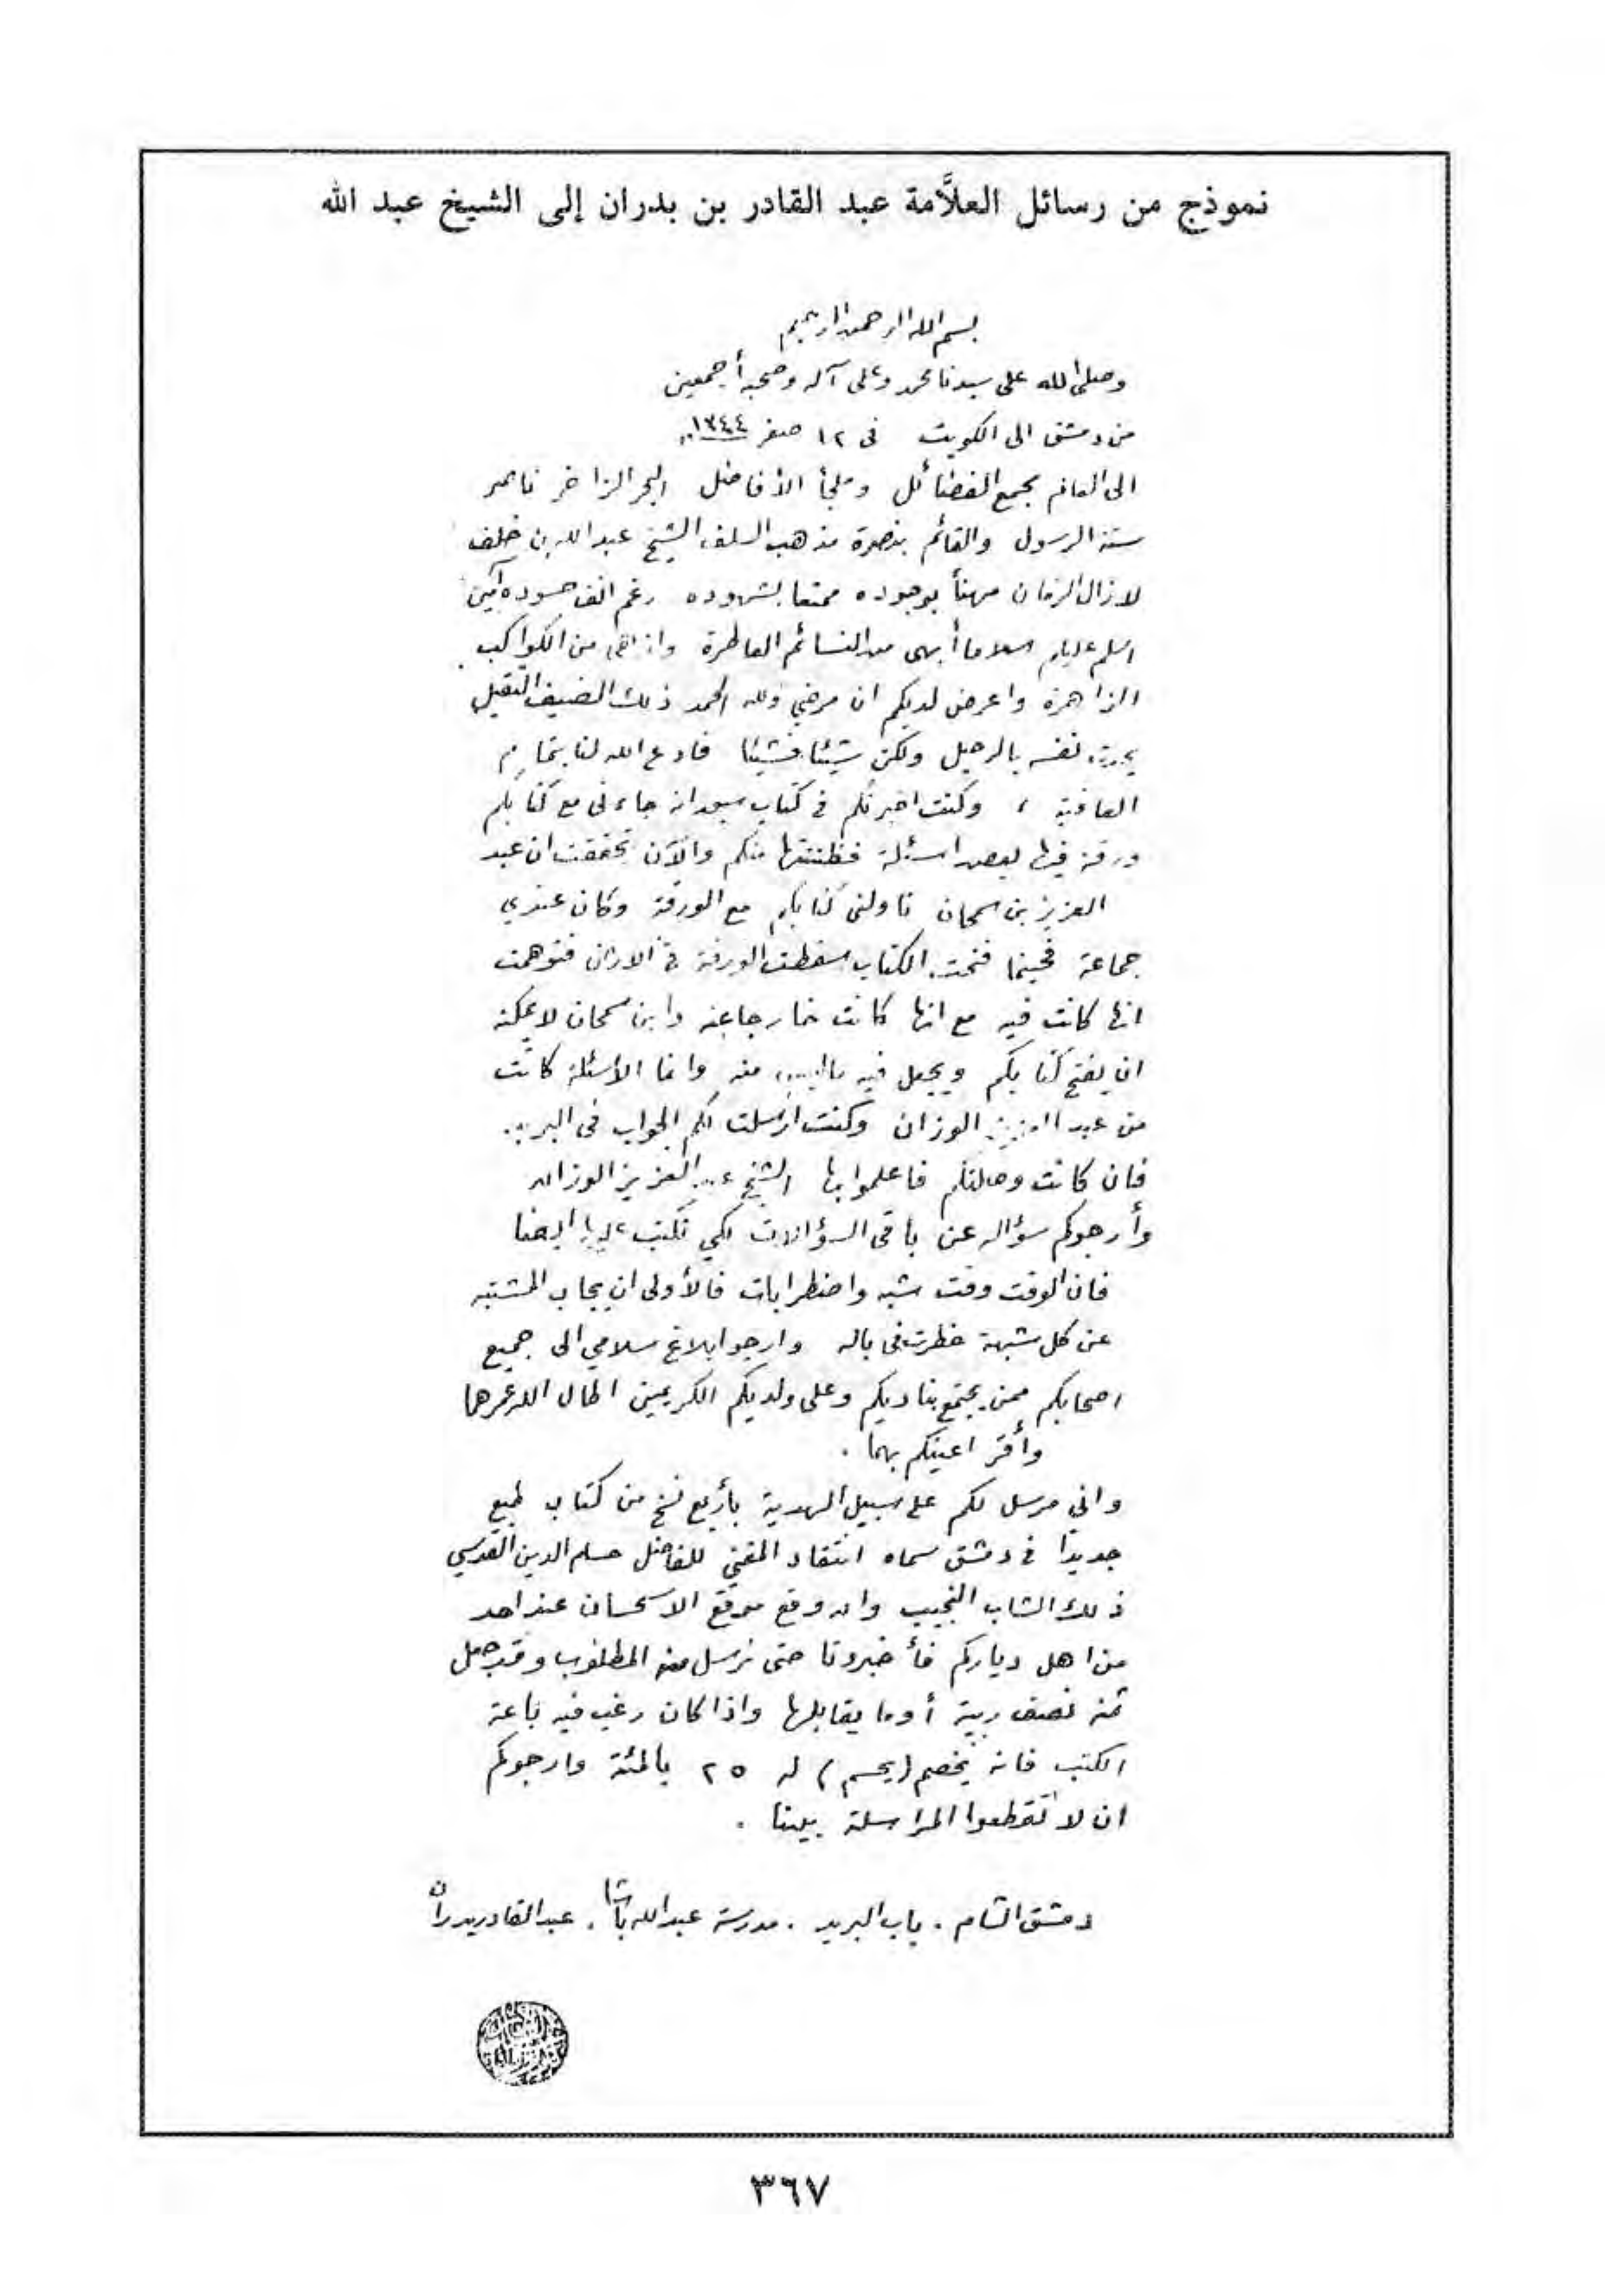 نموذج من رسائل العلاَّمة عبد القادر بن بدران إلى الشيخ عبد الله
بسم الله الرحمن الرحيم
وصلى الله على سيدنا محمد وعلى آله وصحبه أجمعين
من دمشق الى الكويت في ١٢ صفر ١٣٤٤
الى العالم مجمع الفضائل وملجأ الأفاضل البحر الزاخر ناصر
سنة الرسول والقائم بنصرة مذهب السلف الشيخ عبد الله بن خلف
لا زال الزمان مهنأ بوجوده ممتعا بشهوده رغم انف حسوده آمين
اسلم عليكم سلاما أبهى من النسائم العاطرة وازهى من الكواكب
الزاهرة واعرض لديكم ان مرضي ولله الحمد ذلك الضيف الثقيل
يحدث نفسه بالرحيل ولكن شيئا فشيئا فادع الله لنا بتمام
العافية ، وكنت اخبرتكم في كتاب انه جاءني مع كتابكم
ورقة فيها بعض اسئلة فظننتها منكم والآن تحققت ان عبد
العزيز بن سمحان ناولني كتابكم مع الورقة وكان عندي
جماعة فحينما فتحت الكتاب سقطت الورقة في الارض فتوهمت
انها كانت فيه مع انها كانت خارجا عنه وابن سمحان لا يمكنه
ان يفتح كتابكم ويجعل فيه ما ليس منه وانما الاسئلة كانت
من عبد العزيز الوزان وكنت ارسلت لكم الجواب في البريد.
فان كانت وصلتكم فاعلموا بها الشيخ عبد العزيز الوزان
وأرجوكم سؤاله عن باقي السؤالات لكي نكتب عليها ايضا
فان الوقت وقت شبه واضطرابات فالأولى ان يجاب المشتبه
عن كل شبهة خطرت في باله وارجو ابلاغ سلامي الى جميع
اصحابكم ممن يجتمع بناديكم وعلى ولديكم الكريمين اطال الله عمرهما
وأقر اعينكم بهما .
واني مرسل لكم على سبيل الهدية بأربع نسخ من كتاب طبع
جديدا في دمشق سماه انتقاد المغني للفاضل حسام الدين القدسي
ذلك الشاب النجيب وان وقع موقع الاستحسان عند احد
من اهل دياركم فأخبرونا حتى نرسل منه المطلوب وقد جعل
ثمنه نصف ربية أو ما يقابلها واذا كان رغب فيه باعة
الكتب فانه يخصم (يحسم) له ٢٥ بالمئة وارجوكم
ان لا تقطعوا المراسلة بيننا .
دمشق الشام . باب البريد . مدرسة عبد الله باشا . عبد القادر بدران
٣٦٧